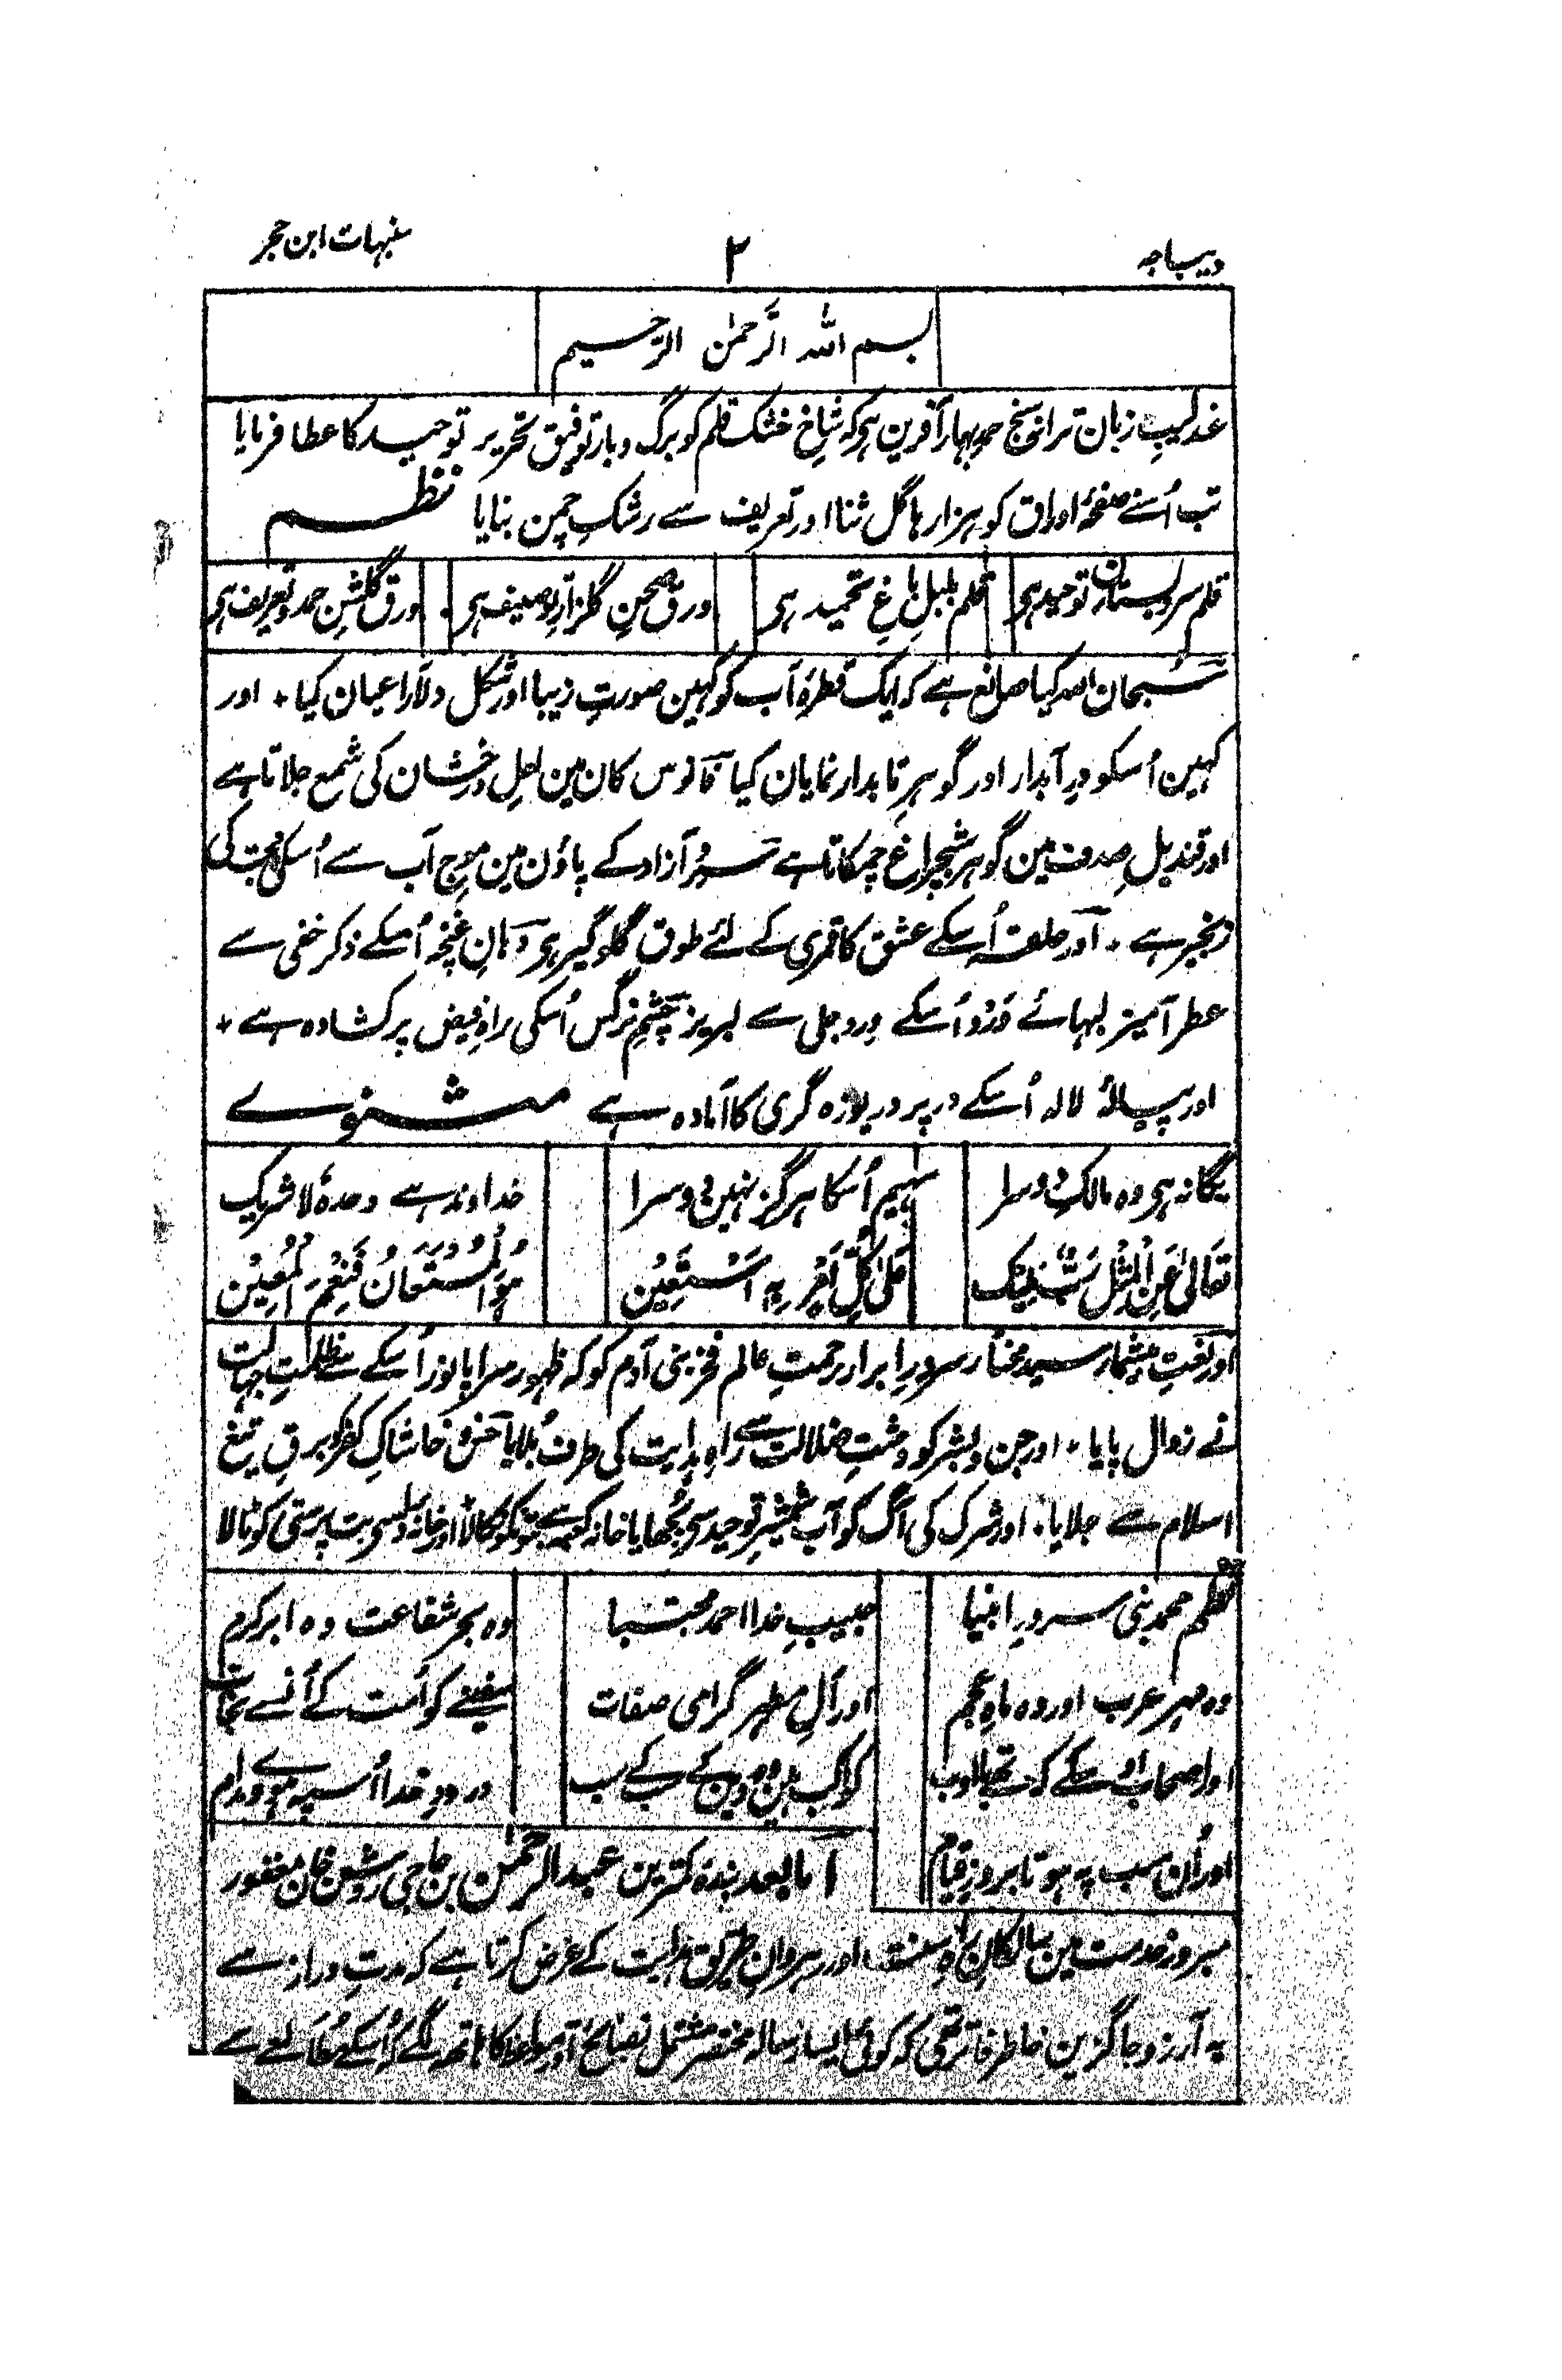 دیباجہ ۲ منبہات ابن حجر
بسم اللہ الرحمٰن الرحیم
عندلیبِ زبان ترانہ سنج حمدِ بہار آفرین ہی کہ شاخِ خشک قلم کو برگ و بار توفیقِ تحریر توحید کا عطا فرمایا
تب اُسنے صفحۂ اوراق کو ہزارہا گل ثنا اور تعریف سے رشکِ چمن بنایا نظم
قلم سروِ بستانِ توحید ہی قلم بلبلِ باغِ تحمید ہی ورق صحنِ گلزارِ توصیف ہی ورق گلشنِ حمد و تعریف ہی
سُبحان اللہ کیا صانع ہے کہ ایک قطرۂ آب کو کہین صورتِ زیبا اور شکل دلآرا عیان کیا ٭ اور
کہین اُسکو دُرِ آبدار اور گوہرِ تابدار نمایان کیا فانوس کان مین لعلِ درخشان کی شمع جلاتا ہے
اور قندیلِ صدف مین گوہر شبچراغ چمکاتا ہے سروِ آزاد کے پاؤن مین موجِ آب سے اُسکی محبت کی
زنجیر ہے ٭ اور حلقہ اُسکے عشق کا قمری کے لئے طوقِ گلوگیر ہی دہانِ غنچہ اُسکے ذکر خفی سے
عطر آمیز لبہائے اُسکے وردِ جلی سے لبریز چشمِ نرگس اُسکی راہِ فیض پر کشادہ ہے ٭
اور پیالۂ لالہ اُسکے در پر دریوزہ گری کا آمادہ ہے مثنوے
یگانہ ہی وہ مالکِ دوسرا سہیم اُسکا ہرگز نہین دوسرا خداوند ہے وحدہٗ لا شریک
تَعَالٰی عَنِ الْمِثْلِ علٰی کُلِّ اَمْرٍ بِہٖ اَسْتَعِیْن ہُوَ الْمُسْتَعَانُ فَنِعْمَ الْمُعِیْن
اور نعتِ بیشمار سید مختار سرورِ ابرار رحمتِ عالم فخرِ بنی آدم کو کہ ظہور سراپا نور اُسکے سے ظلمتِ جہالت
نے زوال پایا ٭ اور جن و بشر کو دشتِ ضلالت سے راہِ ہدایت کی طرف بُلایا خس و خاشاکِ کفر کو برقِ تیغِ
اسلام سے جلایا ٭ اور شرک کی آگ کو آبِ شمشیرِ توحید سی بُجھایا خانہ کعبہ سے بتونکو نکالا اور خانہ دلسی بت پرستی کو ٹالا
نظم محمد نبی سرورِ انبیا حبیبِ خدا احمد مجتبا وہ بحرِ شفاعت وہ ابرِ کرم
وہ مہرِ عرب اور وہ ماہِ عجم اور آلِ مطہر گرامی صفات سفینے کو اُمت کے اُنسے نجات
اور اصحاب اوسکے کہ تھے باادب کواکب ہین وہ دین کے سب کے سب درودِ خدا اُسپہ ہووے مدام
اور اُن سب پہ ہو تا بروزِ قیام اما بعد بندہ کمترین عبدالرحمٰن بن حاجی روشن خان مغفور
مبرور خدمت مین سالکانِ راہِ سنت اور رہروانِ طریقِ ہدایت کے عرض کرتا ہے کہ مدتِ دراز سے
یہ آرزو جاگزین خاطر فاتر تھی کہ کوئی ایسا رسالہ مختصر مشتمل نصائح اور کا ہاتھ لگے کہ اُسکے مطالعے سے